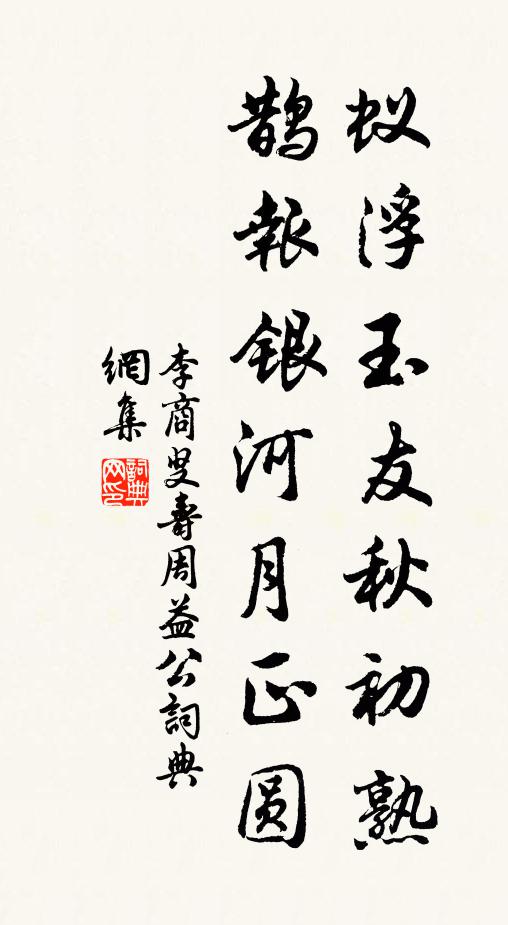 蚁浮玉友秋初熟
鹊報银河月正圆
李商叟壽周益公詞典
網集
詞典网印